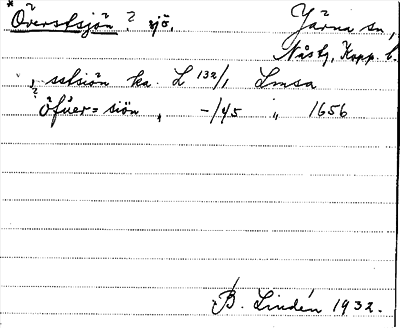 * Överstsjön? sjö. Järna sn,
Nåstj, Kopp. l.
, sstsiön ka. L 132/1 Lmsa
? öfuer= siön, -/45 " 1656
B. Lindén 1932.